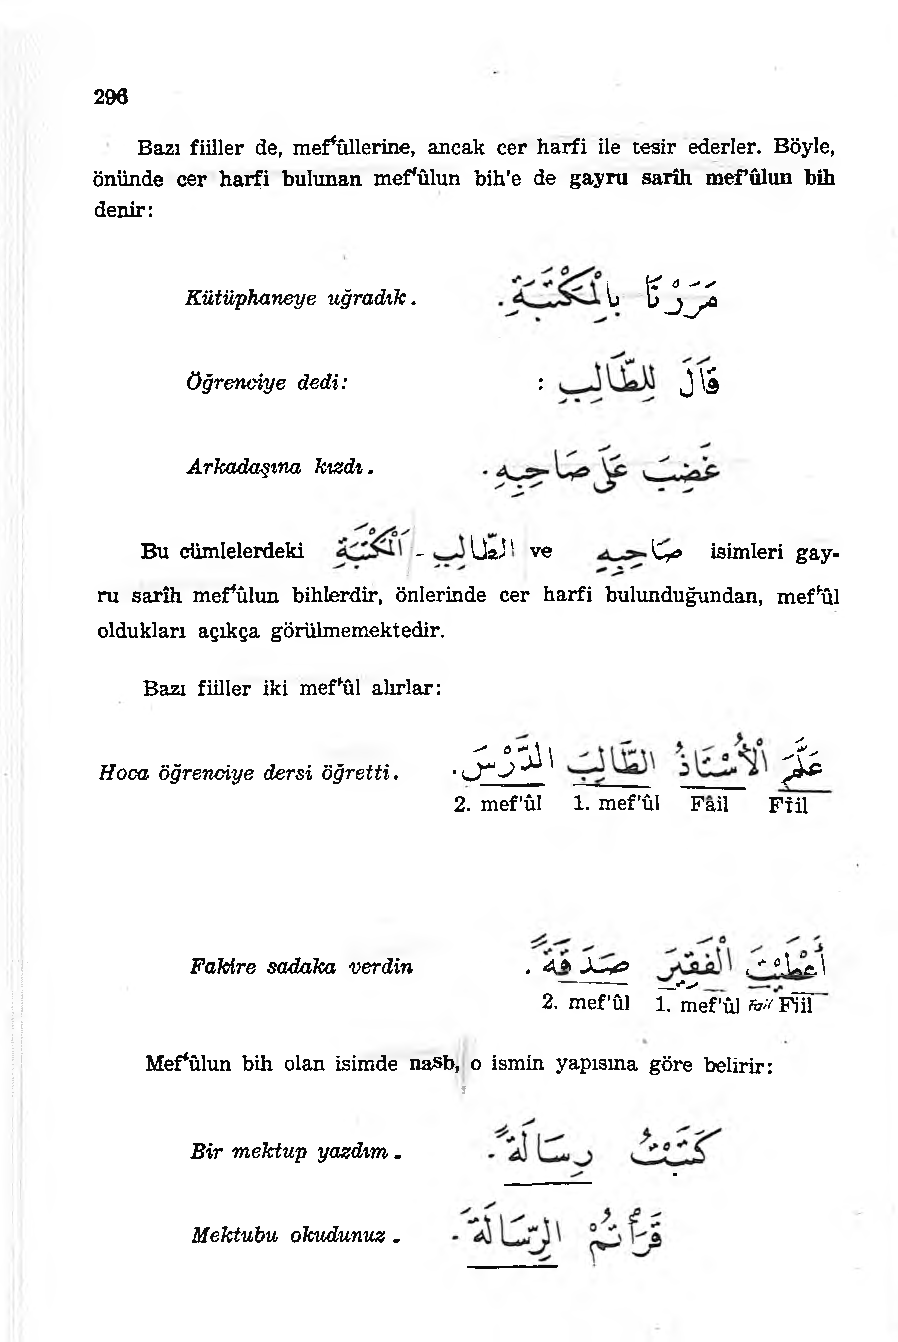 296
Bazı fiiller de, mef'ûllerine, ancak cer harfi ile tesir ederler. Böyle,
önünde cer harfi bulunan mef'ûlun bih'e de gayru sarîh mef'ûlun bih
denir:
Kütüphaneye uğradık. مَرَرْنَا بِالْمَكْتَبَةِ.
Öğrenciye dedi: قَالَ لِلطَّالِبِ :
Arkadaşına kızdı. غَضِبَ عَلَى صَاحِبِهِ.
Bu cümlelerdeki اَلْمَكْتَبَةِ - الطَّالِبِ ve صَاحِبِهِ isimleri gay-
ru sarîh mef'ûlun bihlerdir, önlerinde cer harfi bulunduğundan, mef'ûl
oldukları açıkça görülmemektedir.
Bazı fiiller iki mef'ûl alırlar:
Hoca öğrenciye dersi öğretti. عَلَّمَ اْلأُسْتَاذُ الطَّالِبَ الدَّرْسَ.
2. mef'ûl 1. mef'ûl Fâil Fiil
Fakire sadaka verdin أَعْطَيْتَ الْفَقِيرَ صَدَقَةً.
2. mef'ûl 1. mef'ûl Fail Fiil
Mef'ûlun bih olan isimde nasb, o ismin yapısına göre belirir:
Bir mektup yazdım. كَتَبْتُ رِسَالَةً.
Mektubu okudunuz. قَرَأْتُمْ الرِّسَالَةَ.